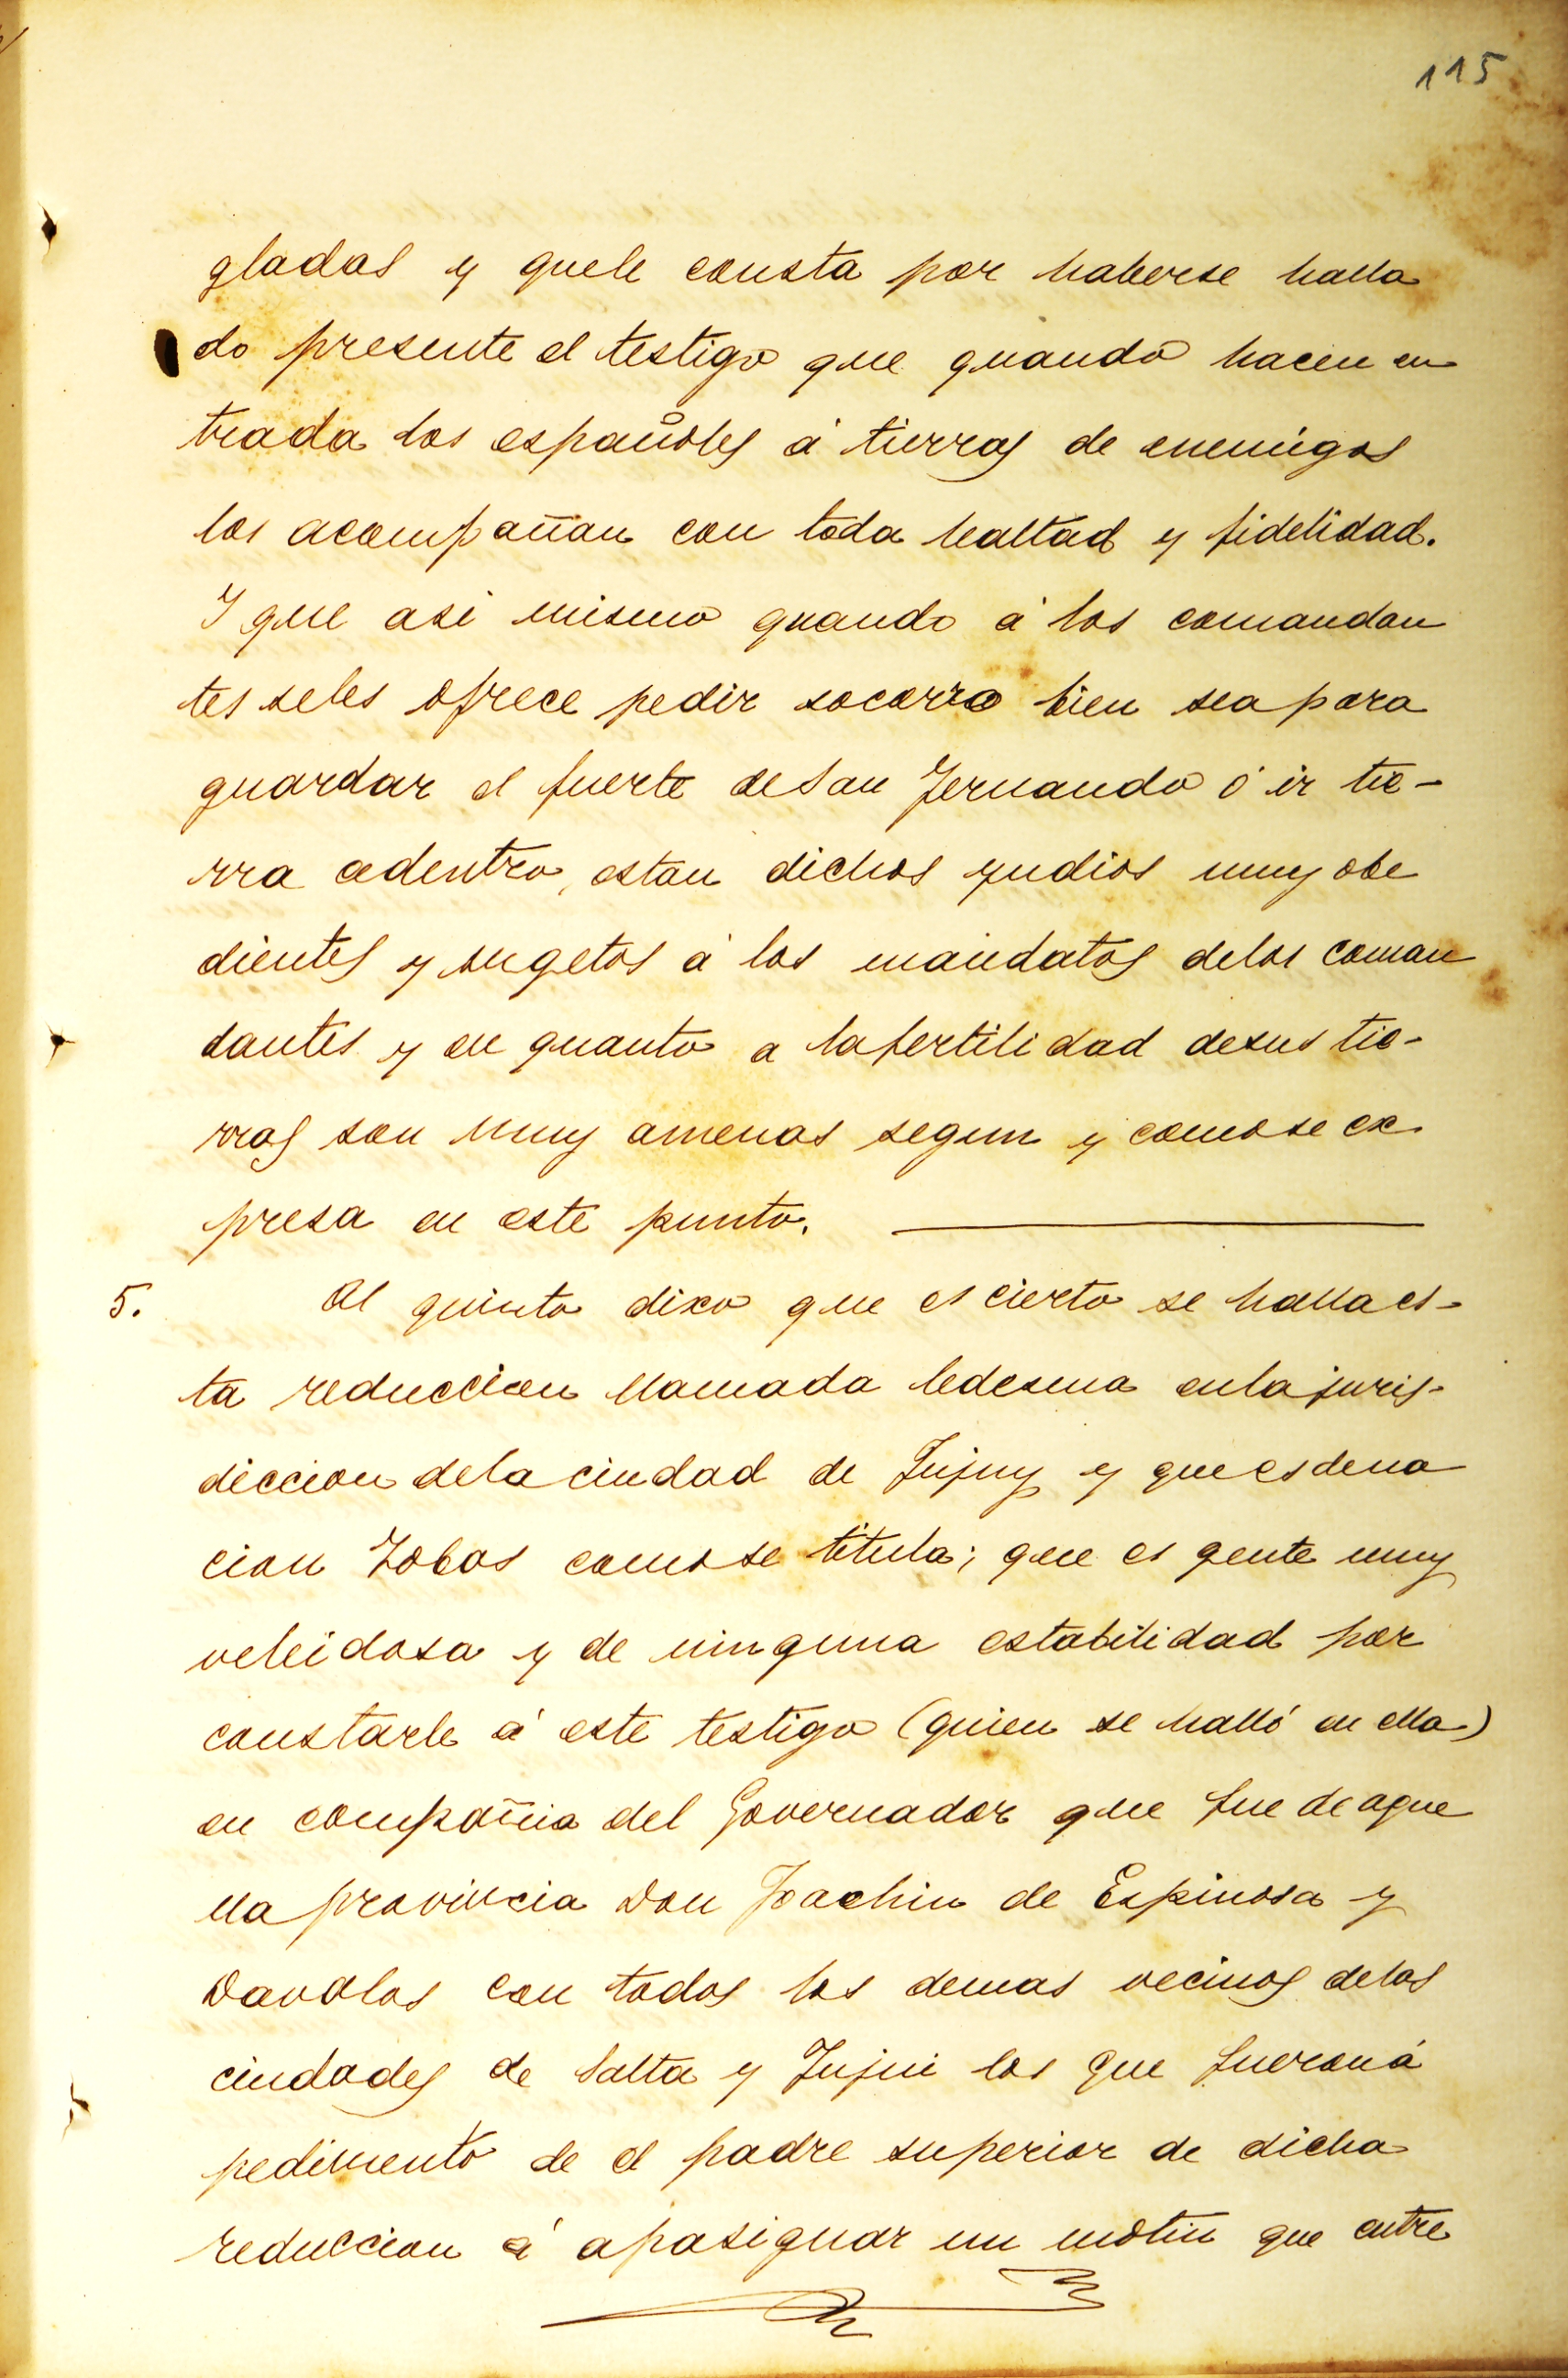 115
gladas y quele consta por haberse halla
do presente el testigo que quando hacen en
trada los españoles á tierras de enemigos
los acompañan con toda lealtad y fidelidad.
I que asi mismo quando á los comandan
tes seles ofrece pedir socorro bien sea para
guardar el fuerte de San Fernando ó ir tie-
rra adentro, estan dichos yndios muy obe
dientes y sugetos á los mandatos delos coman
dantes y en quanto a la fertilidad desus tie-
rras son muy amenas segun y comose ex
presa en este punto.
5. Al quinto dixo que es cierto se halla es-
ta reduccion llamada ledesma enla juris-
diccion dela ciudad de Jujuy y que es dena
cion Tobas comose titula; que es gente muy
veleidosa y de ninguna estabilidad por
constarle á este testigo (quien se halló en ella)
en compañia del Governador que fue de aque
lla provincia Don Joachin de Espinosa y
Davalos con todos los demas vecinos delas
ciudades de Salta y Jujui los que fueron á
pedimento de el padre superior de dicha
reduccion á apasiguar un motin que entre